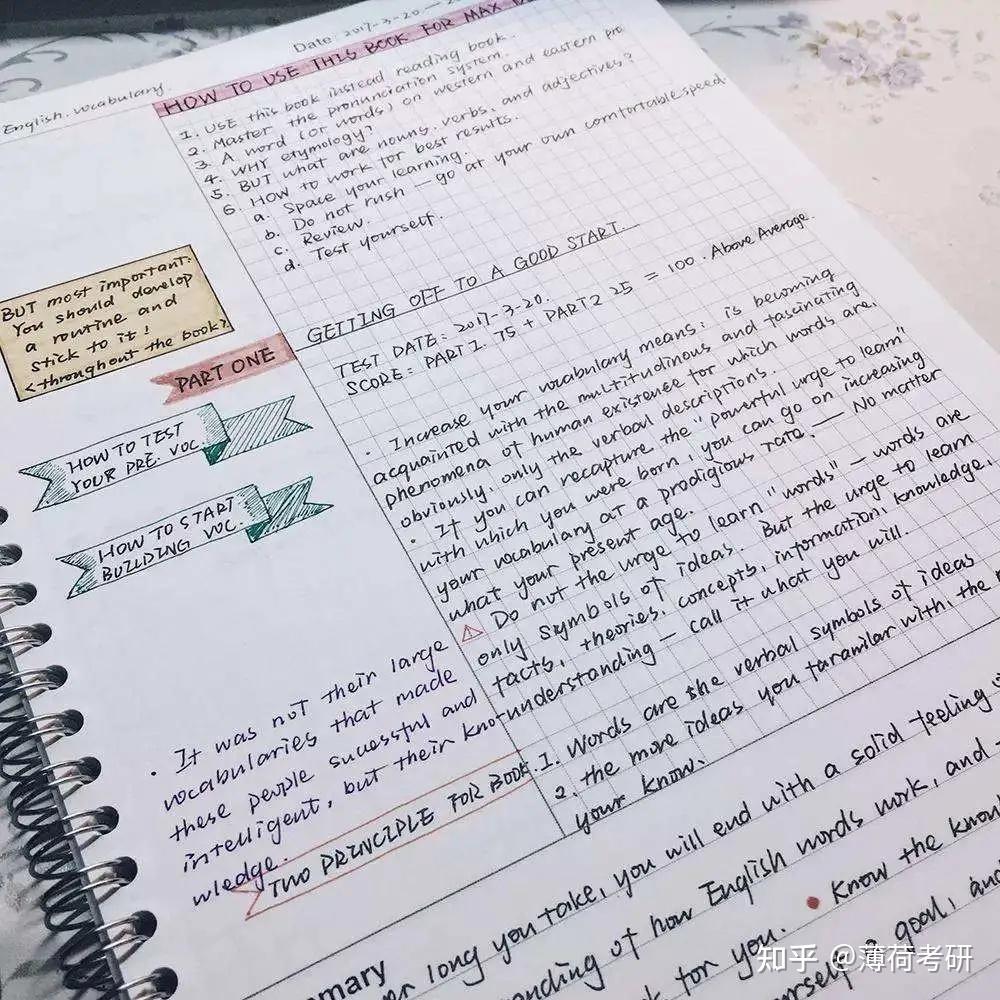 Date: 2017-3-20
English. vocabulary.
HOW TO USE THIS BOOK FOR MAX
1. USE this book instead reading book.
2. Master the pronunciation system.
3. A word (or words) on western and eastern pro
4. WHY etymology?
5. BUT what are nouns, verbs, and adjectives?
6. HOW to work for best results.
a. Space your learning.
b. Do not rush — go at your own comfortable speed.
c. Review.
d. Test yourself.
BUT most important:
You should develop
a routine and
stick to it!
<throughout the book>
GETTING OFF TO A GOOD START.
TEST DATE: 2017-3-20.
SCORE: PART1. 75 + PART2 25 = 100. Above Average.
PART ONE
HOW TO TEST
YOUR PRE. VOC.
HOW TO START
BUILDING VOC.
· Increase your vocabulary means: is becoming
acquainted with the multitudinous and fascinating
phenomena of human existence for which words are,
obviously, only the verbal descriptions.
· If you can recapture the "powerful urge to learn"
with which you were born, you can go on increasing
your vocabulary at a prodigious rate. — No matter
what your present age.
Do not the urge to learn "words" — words are
only symbols of ideas. But the urge to learn
facts, theories, concepts, information, knowledge,
understanding — call it what you will.
· It was not their large
vocabularies that made
these people sucessful and
intelligent, but their kno-
wledge.
TWO PRINCIPLE FOR BOOK.
1. Words are the verbal symbols of ideas
2. the more ideas you faramilar with, the
your know.
mmary
long you take, you will end with a solid feeling
nding of how English words work, and
for you. • Know the know
urself a goal, and
知乎 @薄荷考研